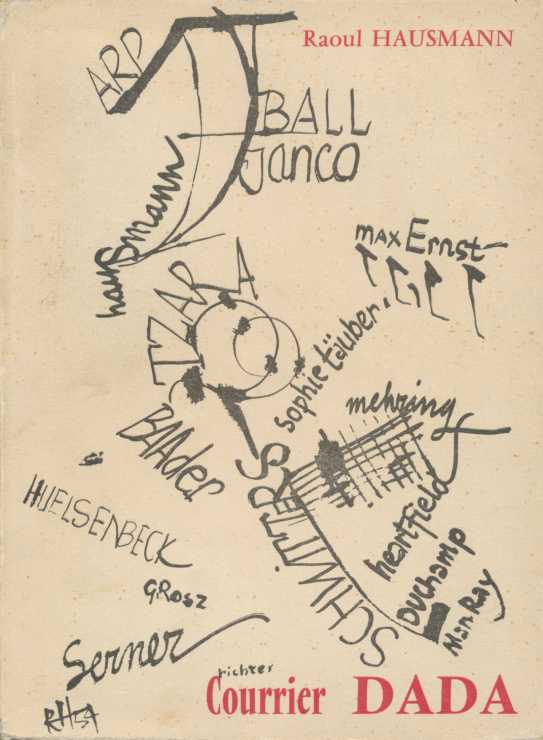 Raoul HAUSMANN
ARP
BALL
Janco
hausmann
MAX Ernst
TZARA
Sophie täuber
mehring
BAAder
SCHWITTERS
HUELSENBECK
heartfield
DUchamp
Man Ray
G.Rosz
Serner
richter
Courrier DADA